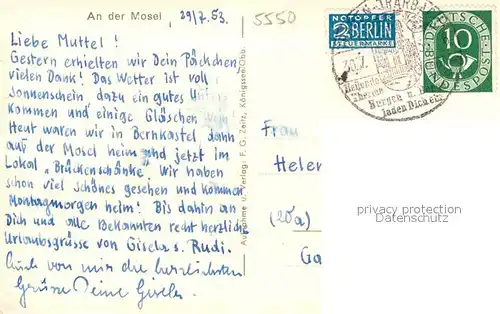 An der Mosel
29/7.53
5550
Liebe Muttel!
Gestern erhielten wir Dein Päckchen
vielen Dank! Das Wetter ist voll
Sonnenschein dazu ein gutes
kommen und einige Gläschen
Heut waren wir in Bernkastel, dann
auf der Mosel heim und jetzt im
Lokal „Brückenschänke". Wir haben
schon viel schönes gesehen und kommen
Montagmorgen heim! Bis dahin an
Dich und alle Bekannten recht herzliche
Urlaubsgrüsse von Gisela s. Rudi.
Auch von mir die herzlichsten
Grüsse Deine Gisela.
Aufnahme u. Verlag: F. G. Zeitz, Königssee/Obb.
NOTOPFER
2 BERLIN
STEUERMARKE
DEUTSCHE
BUNDESPOST
10
TRARBA
Burgen u.
laden Dich ein
Frau
Helen
(20a)
Ga
privacy protection
Datenschutz